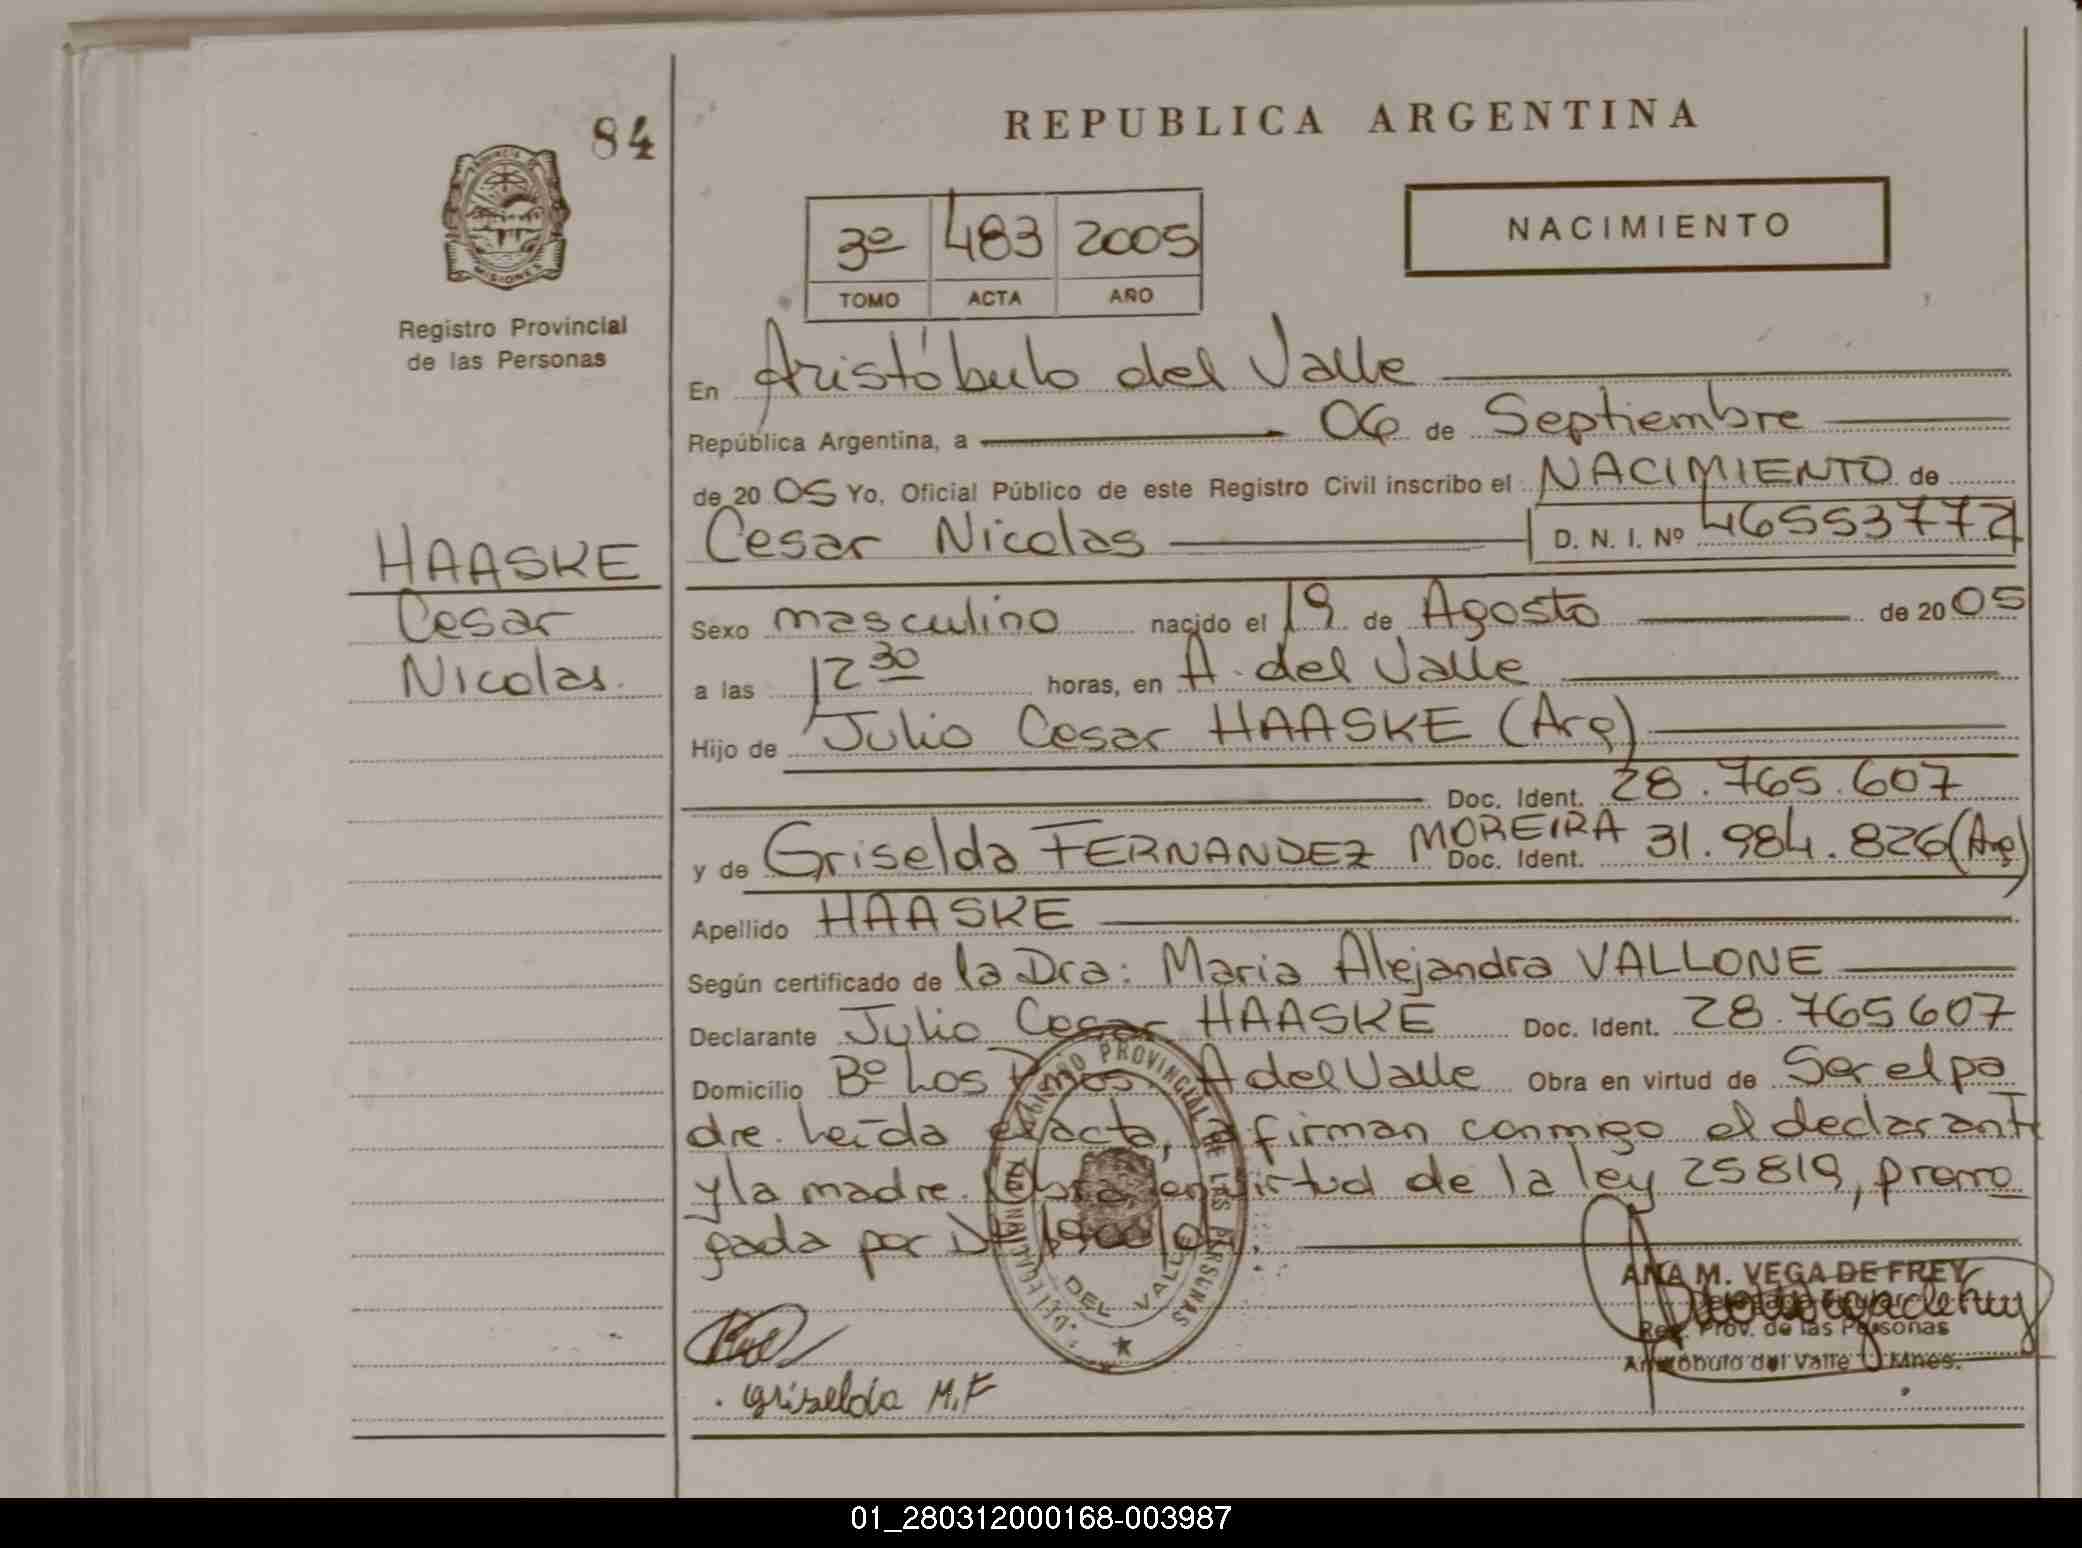 84
PROVINCIA DE
MISIONES
Registro Provincial
de las Personas
HAASKE
Cesar
Nicolas.
REPUBLICA ARGENTINA
3º 483 2005
TOMO ACTA AÑO
NACIMIENTO
En Aristóbulo del Valle
República Argentina, a 06 de Septiembre
de 2005 Yo, Oficial Público de este Registro Civil inscribo el NACIMIENTO de
Cesar Nicolas D. N. I. Nº 46553772
Sexo masculino nacido el 19 de Agosto de 2005
a las 12 30 horas, en A. del Valle
Hijo de Julio Cesar HAASKE (Arg)
Doc. Ident. 28.765.607
y de Griselda FERNANDEZ MOREIRA Doc. Ident. 31.984.826 (Arg)
Apellido HAASKE
Según certificado de la Dra: Maria Alejandra VALLONE
Declarante Julio Cesar HAASKE Doc. Ident. 28.765607
Domicilio Bº Los A del Valle Obra en virtud de Ser el pa
dre. Leída exacta, la firman conmigo el declarante
y la madre. Obra en virtud de la ley 25819, prorro
gada por
REGISTRO PROVINCIAL DE LAS PERSONAS
DEL VALLE
ANA M. VEGA DE FREY
Reg. Prov. de las Personas
Aristóbulo del Valle Mnes.
Griselda M.F
01_280312000168-003987